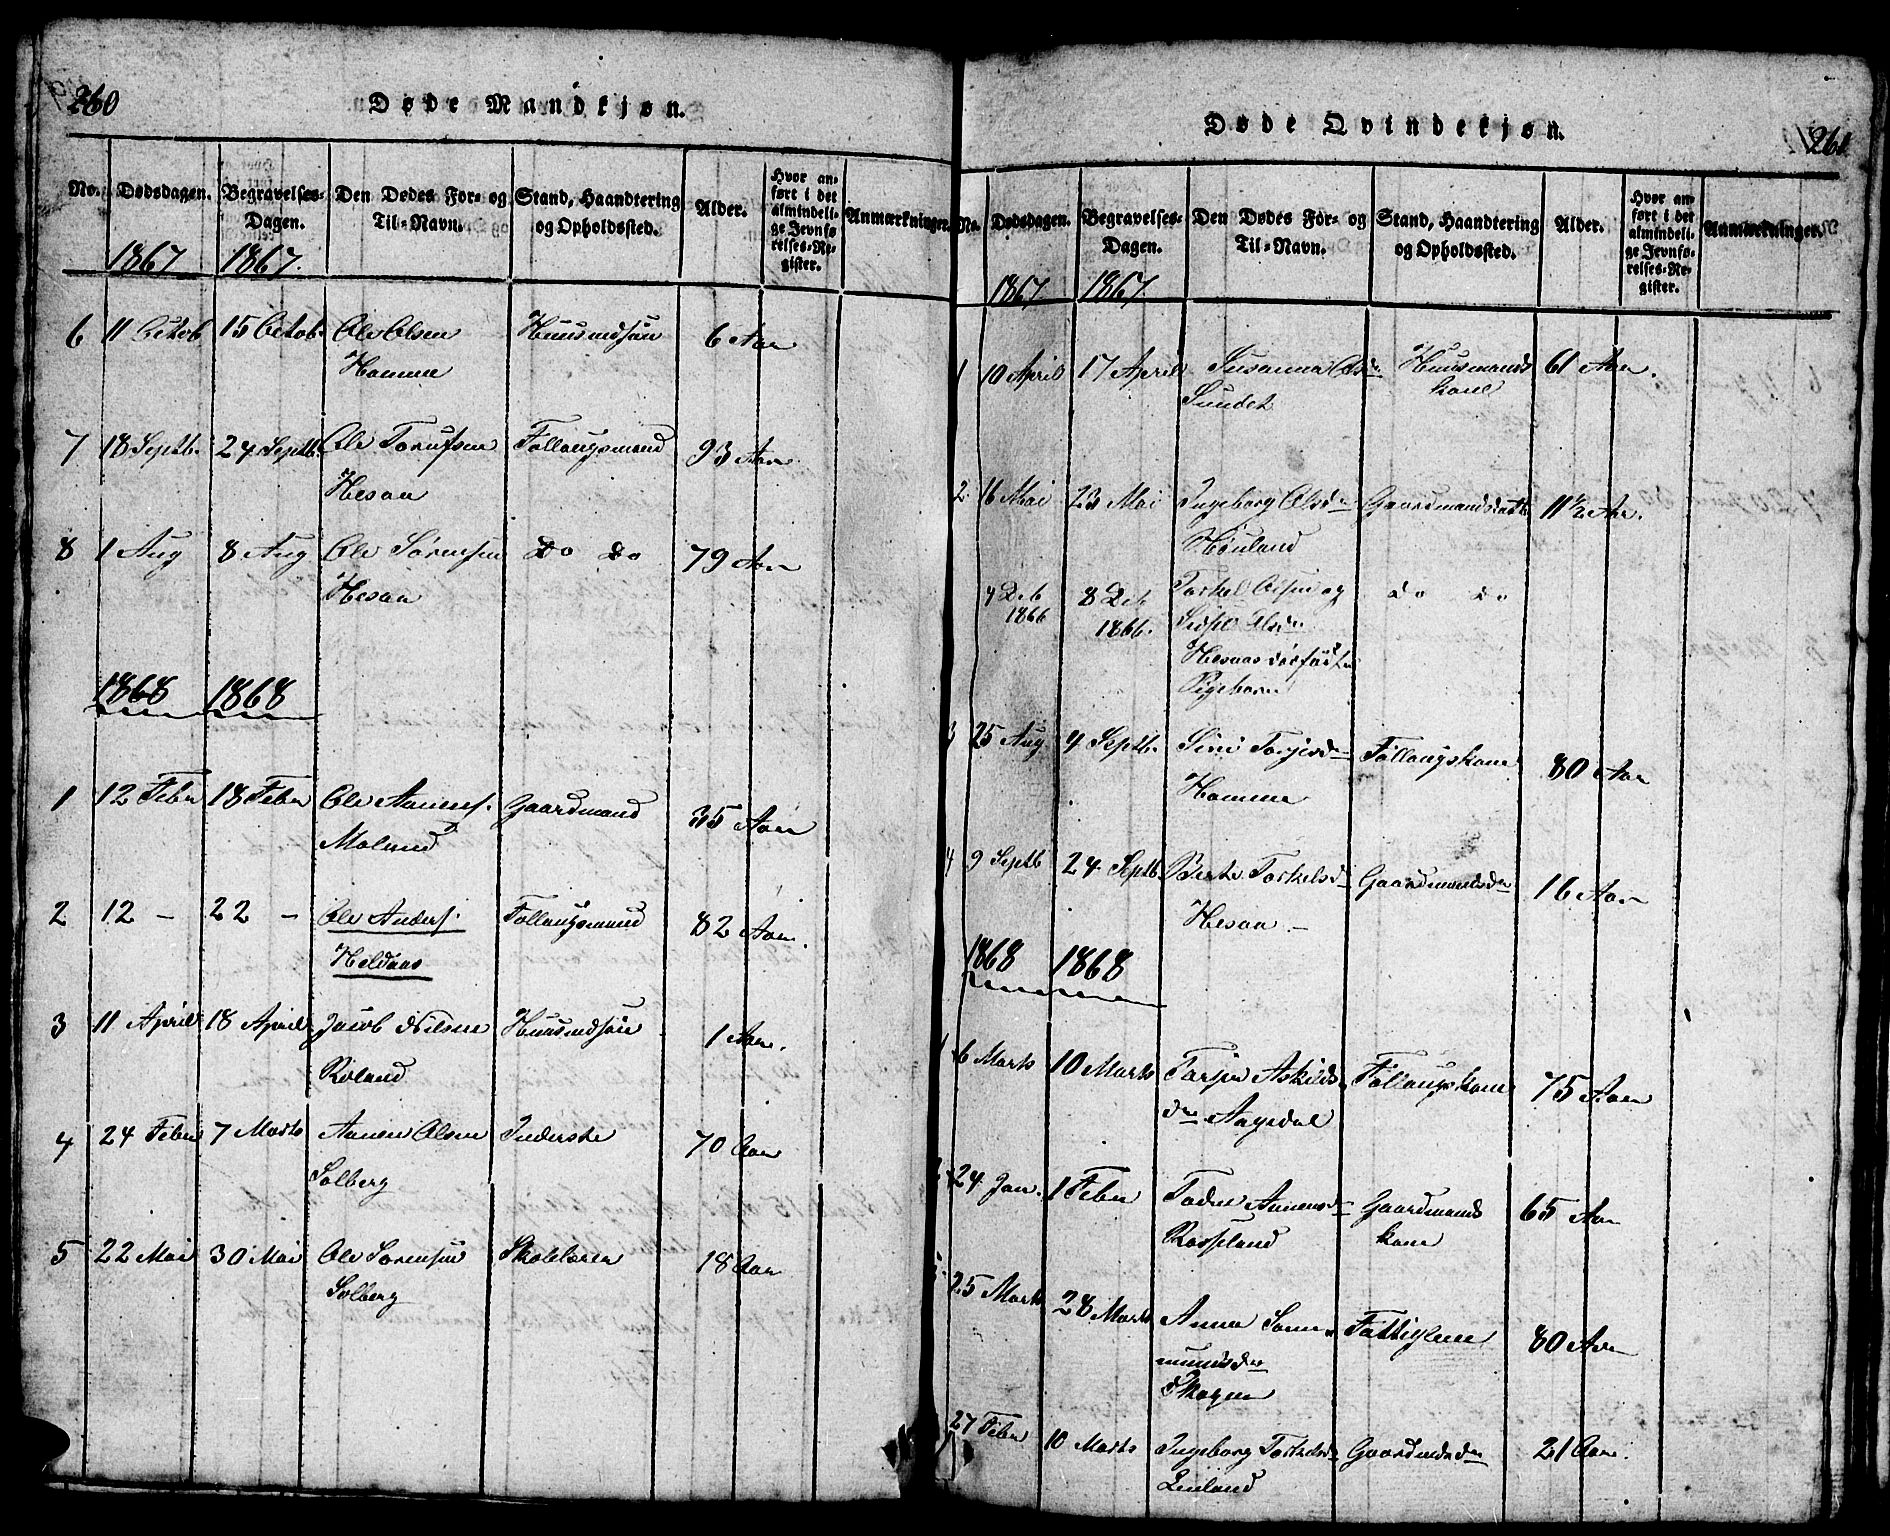 260
Døde Mandkjøn.
No. Dødsdagen. Begravelses-Dagen. Den Dødes For- og Til-Navn. Stand, Haandtering og Opholdssted. Alder. Hvor anført i det almindelige Jevnførelses-Register. Anmærkninger.
1867 1867.
6 11 Octob 15 Octob. Ole Olsen Huusmdsøn 6 Aar
Homme
7 18 Septb. 24 Septb. Ole Føllaugsmand 93 Aar
Hesaa
8 1 Aug 8 Aug Ole Sørensen do do 79 Aar
Hesaa
1868 1868
1 12 Febr 18 Febr Ole Aanens. Gaardmand 35 Aar
Molund
2 12 - 22 - Ole Anders. Føllaugsmand 82 Aar.
Heldaas
3 11 April 18 April Jacob Nilsen Huusmdsøn 1 Aar.
Røland
4 24 Febr 7 Marts Aanen Olsen Inderste 70 Aar
Solberg
5 22 Mai 30 Mai Ole Sørensen Skolelærer 18 Aar
Solberg
261
Døde Qvindekjøn.
No. Dødsdagen. Begravelses-Dagen. Den Dødes For- og Til-Navn. Stand, Haandtering og Opholdssted. Alder. Hvor anført i det almindelige Jevnførelses-Register. Anmærkninger.
1867 1867.
1 10 April 17 April Susanna Olsdr Huusmands 61 Aar.
Sundet kone
2. 16 Mai 23 Mai Ingeborg Olsdr Gaardmandsdatt 11½ Aar.
Høuland
4 Deb 8 Deb Torkel Olsen og do do
1866 1866. Sidsel Olsdr
Hesaas dødfødte
Pigebarn
3 25 Aug 4 Septb. Siri Torjersdr Føllaugskone 80 Aar
Homme
4 9 Septb 24 Septb. Berte Torkelsdr Gaardmandsdr 16 Aar
Hesaa -
1868 1868
6 Marts 10 Marts Torjer Askilds Føllaugskone 75 Aar
dr Aagedal
24 Jan. 1 Febr Aanensdr Gaardmands 65 Aar
Rossland kone
25 Marts 28 Marts Anna Fattiglem 80 Aar
mundsdr
Skogen
27 Febr 10 Marts Ingeborg Torkelsdr Gaardmdsdr 21 Aar.